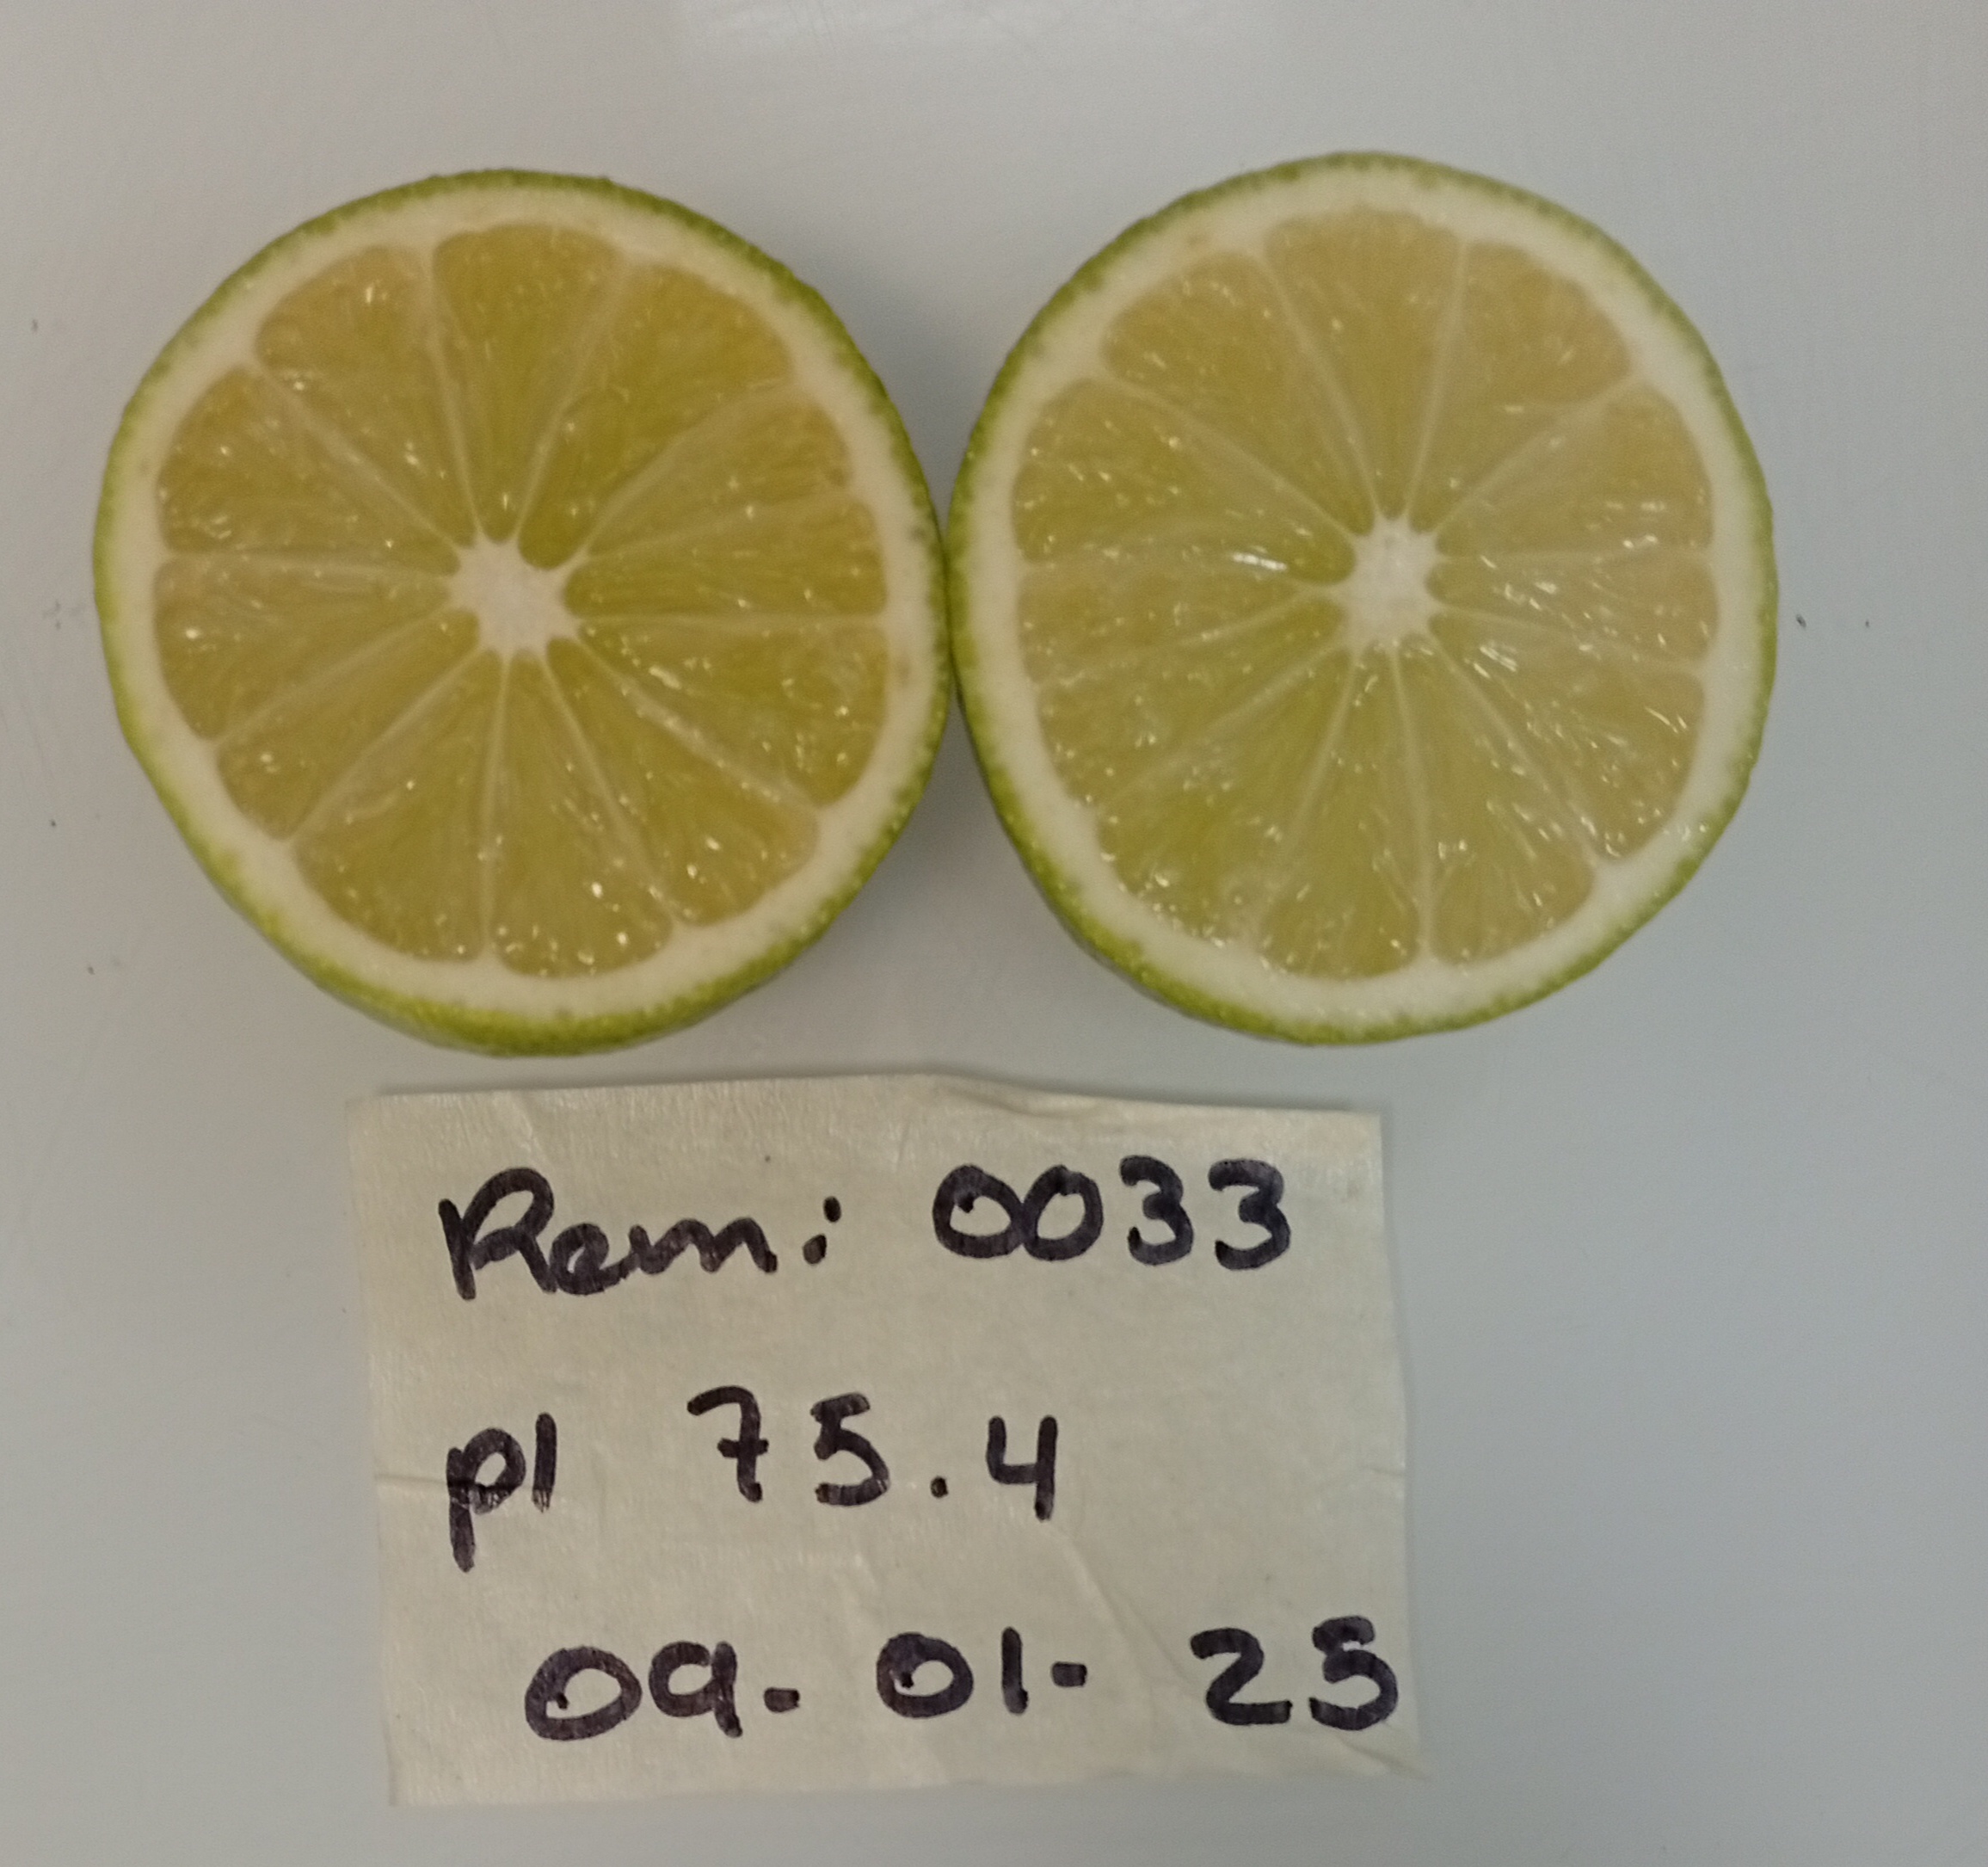 Rem: 0033
pl 75.4
09-01-25